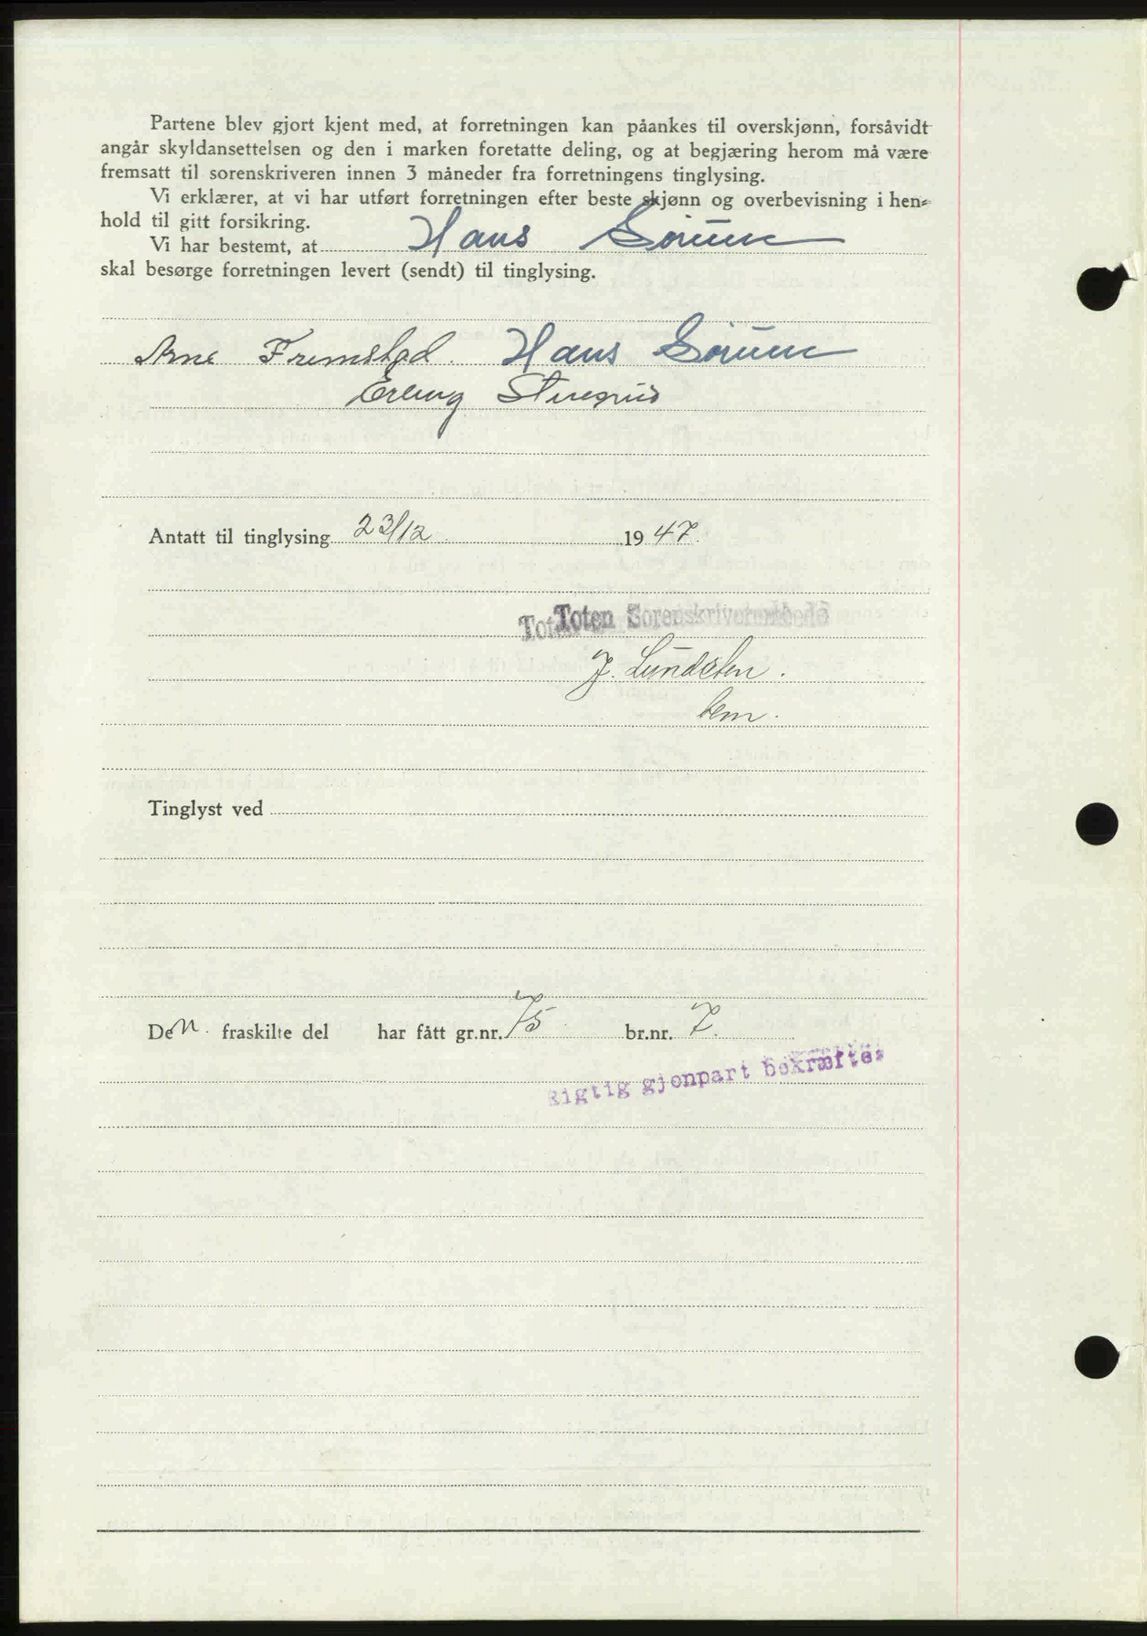 Partene blev gjort kjent med, at forretningen kan påankes til overskjønn, forsåvidt
angår skyldansettelsen og den i marken foretatte deling, og at begjæring herom må være
fremsatt til sorenskriveren innen 3 måneder fra forretningens tinglysing.
Vi erklærer, at vi har utført forretningen efter beste skjønn og overbevisning i hen-
hold til gitt forsikring.
Vi har bestemt, at Hans Sørum
skal besørge forretningen levert (sendt) til tinglysing.
Arne Fremstad. Hans Sørum
Erling
Antatt til tinglysing 23/12 1947.
Toten Sorenskriverembede
J. Lundsten.
bem.
Tinglyst ved
Den. fraskilte del har fått gr.nr. 75 br.nr. 7.
Rigtig gjenpart bekræftes